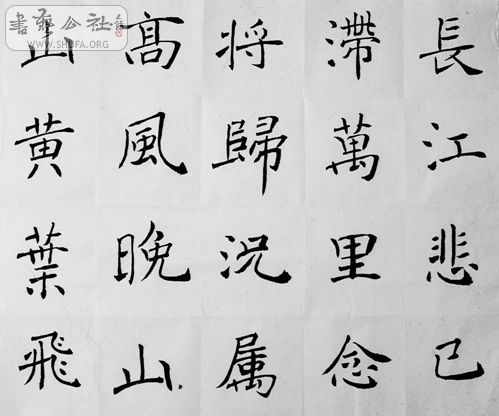 長江悲已
滯萬里念
将歸況属
高風晚山
山黄葉飛
WWW.SHUFA.ORG